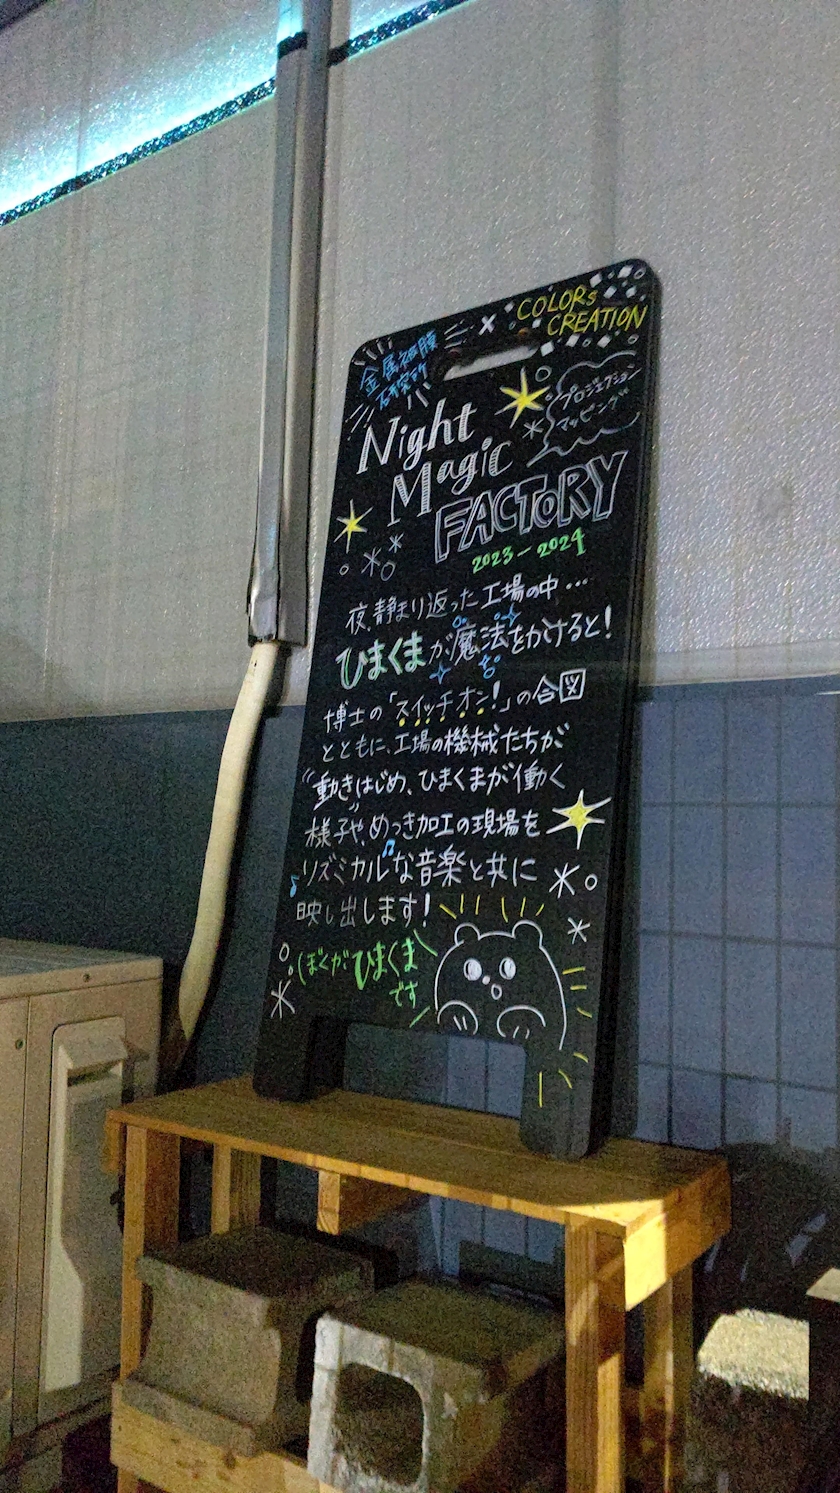 金属被膜
研究所
×
COLORs
CREATION
プロジェクション
マッピング
Night
Magic
FACToRY
2023-2024
夜、静まり返った工場の中…
ひまくまが魔法をかけると!
博士の「スイッチオン!」の合図
とともに、工場の機械たちが
動きはじめ、ひまくまが働く
様子や、めっき加工の現場を
リズミカルな音楽と共に
映し出します!
ぼくがひまくま
です